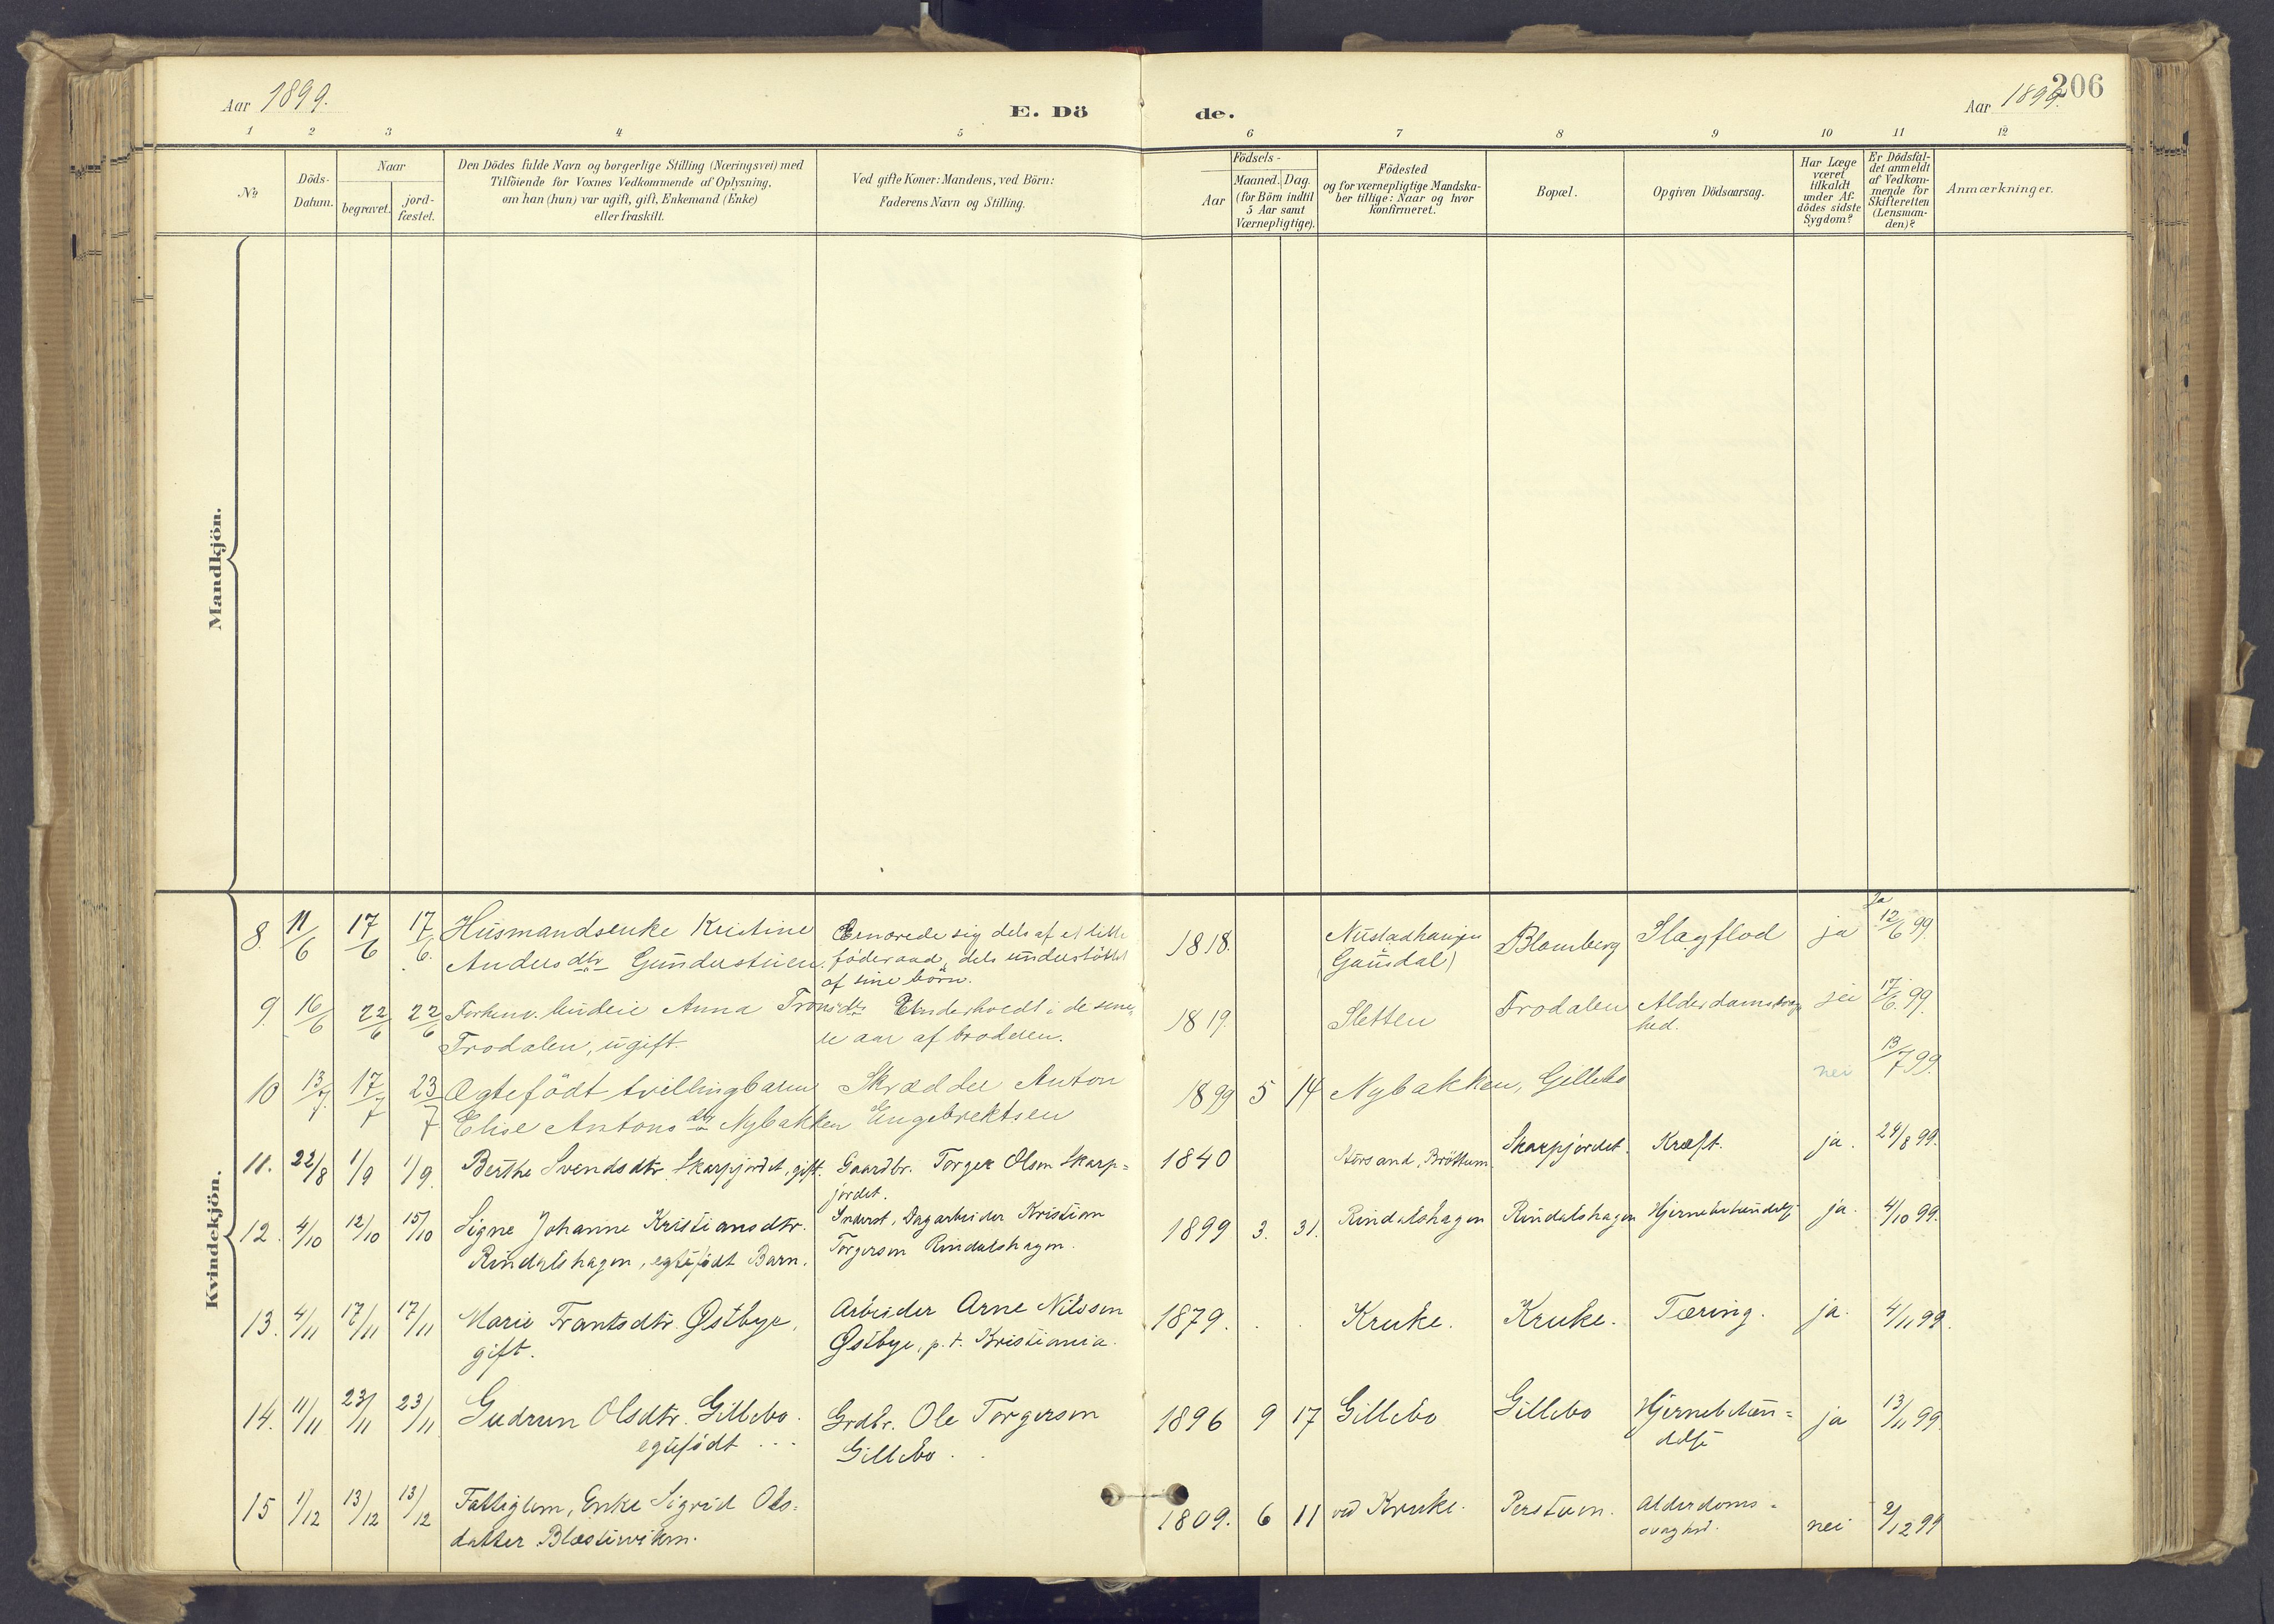 Aar 1899.
E. Dö
de.
Aar 1899.
206
1 2 3 4 5 6 7 8 9 10 11 12
No
Döds-
Datum.
Naar
begravet.
jord-
fæstet.
Den Dödes fulde Navn og borgerlige Stilling (Næringsvei) med
Tilföiende for Voxnes Vedkommende af Oplysning,
om han (hun) var ugift, gift, Enkemand (Enke)
eller fraskilt.
Ved gifte Koner: Mandens, ved Börn:
Faderens Navn og Stilling.
Födsels-
Aar
Maaned. Dag.
(for Börn indtil
5 Aar samt
Værnepligtige).
Födested
og for værnepligtige Mandska-
ber tillige: Naar og hvor
konfirmeret.
Bopæl.
Opgiven Dödsaarsag.
Har Læge
været
tilkaldt
under Af-
dödes sidste
Sygdom?
Er Dödsfal-
det anmeldt
af Vedkom-
mende for
Skifteretten
(Lensman-
den)?
Anmærkninger.
Mandkjön.
Kvindekjön.
8. 11/6 17/6 17/6.
Husmandsenke Kristine
Anders dtr Gunderstuen.
Ernærede sig dels af et lidet
föderaad, dels understöttet
af sine börn.
1818.
(Gausdal)
Blomberg
Slagflod
ja
Ja
12/6 99.
9. 16/6 22/6 22/6
Forhenv. budeie Anna Tronsdtr
Trodalen, ugift.
Underholdt i de sene-
re aar af broderen.
1819.
Sletten
Trodalen
Alderdomssvag-
hed.
17/6. 99.
10 13/7. 17/7 23/7
Ægtefödt tvillingbarn
Elise Antons dtr Nybakken
Skrædder Anton
Engebrektsen
1899 5 14
Nybakken, Gillebo
nei
13/7 99.
11. 22/8 1/9 1/9.
Berthe Svendsdtr. Skarpjordet, gift.
Gaardbr. Torger Olsen Skarp-
jordet.
1840
Storsand, Bröttum.
Skarpjordet.
Kræft.
ja.
24/8 99.
12. 4/10 12/10 15/10
Signe Johanne Kristiansdtr.
Rindalshagen, egtefödt Barn.
Inderst, Dagarbeider Kristian
Torgersen Rindalshagen.
1899 3. 31.
Rindalshagen
Rindalshagen
Hjernebetændelse
ja.
4/10 99.
13. 4/11 17/11 17/11
Marie Frantsdtr. Østbye,
gift.
Arbeider Arne Nilssen
Østbye, p.t. Kristiania.
1879.
Kruke.
Kruke.
Tæring.
ja.
4/11 99.
14. 11/11 23/11 23/11
Gudrun Olsdtr. Gillebo.
egtefödt ...
Grdbr. Ole Torgersen
Gillebo.
1896 9 17
Gillebo
Gillebo
Hjernebetæn-
delse
ja
13/11 99.
15 1/12 13/12 13/12
Fattiglem, Enke Sigrid Ols-
datter
1809. 6 11
ved Kruke.
Perstuen.
Alderdoms-
svaghed.
nei
2/12 99